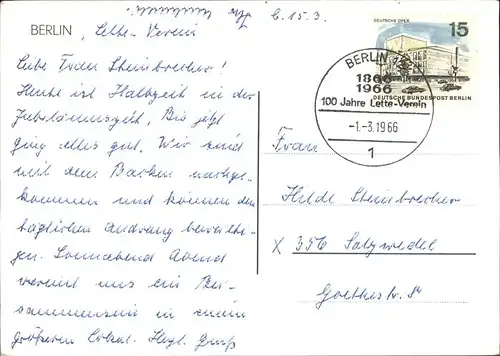 b. 15.3.
BERLIN, Lette-Verein
Liebe Frau Steinbrecher!
Heute ist Halbzeit in der
Jubiläumszeit. Bis jetzt
ging alles gut. Wir sind
mit dem Backen nachge-
kommen und können den
täglichen Andrang bewälti-
gen. Sonnabend Abend
vereint uns ein Bei-
sammensein in einem
größeren Lokal. Herzl. Gruß
DEUTSCHE OPER
15
DEUTSCHE BUNDESPOST BERLIN
BERLIN
1866
1966
100 Jahre Lette-Verein
-1.-3.1966
1
Frau
Hilde Steinbrecher
X 356 Salzwedel
Goethestr.